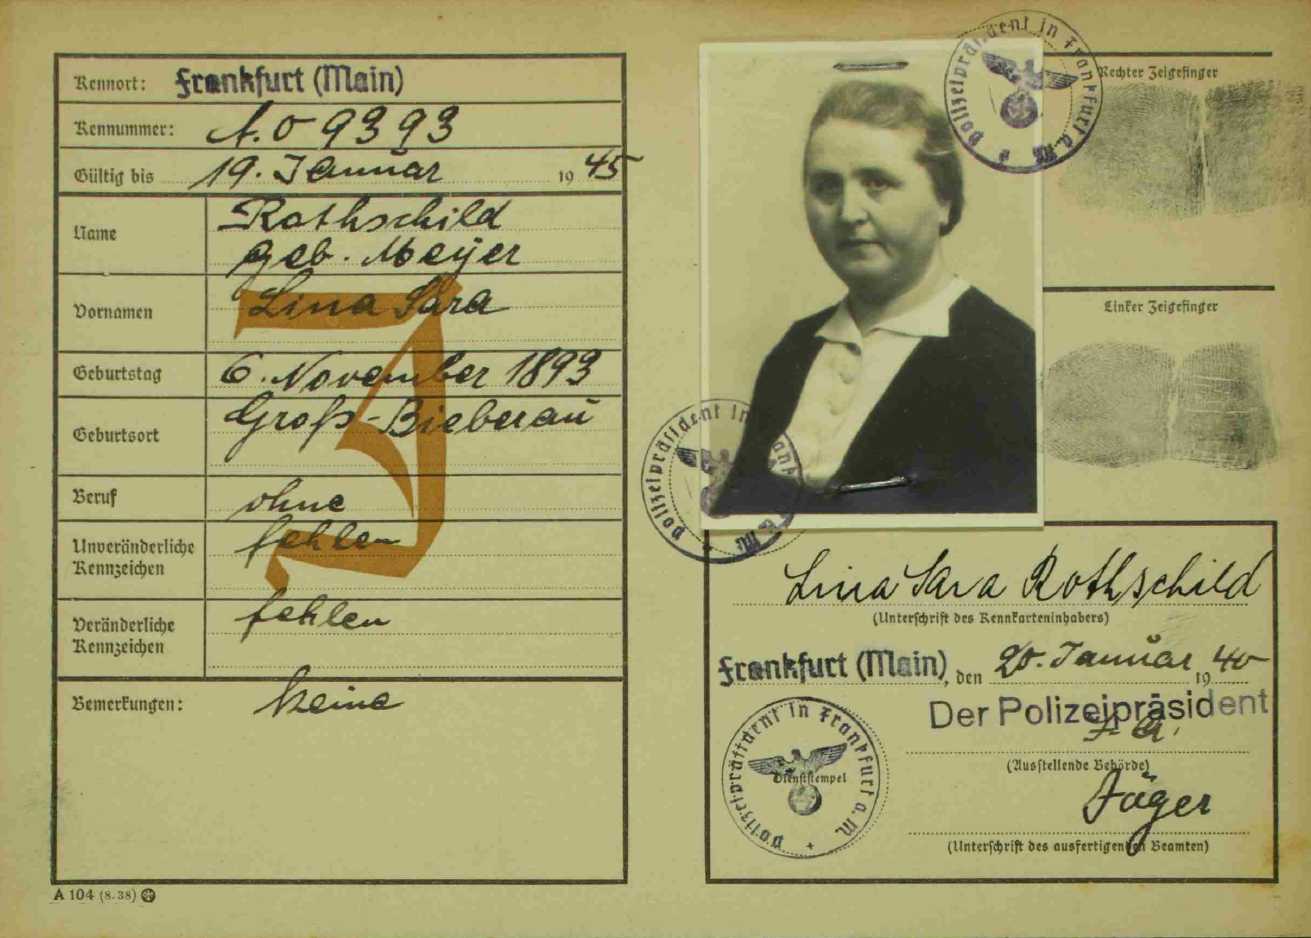 Kennort: Frankfurt (Main)
Kennummer: A.0 9393
Gültig bis 19. Januar 1945
Name Rothschild
geb. Meyer
Vornamen Lina Sara
Geburtstag 6. November 1893
Geburtsort Groß-Bieberau
Beruf ohne
Unveränderliche Kennzeichen fehlen
Veränderliche Kennzeichen fehlen
Bemerkungen: keine
J
A 104 (8.38)
Polizeipräsident in Frankfurt a. M.
Rechter Zeigefinger
Linker Zeigefinger
Polizeipräsident in Frankfurt a. M.
Lina Sara Rothschild
(Unterschrift des Kennkarteninhabers)
Frankfurt (Main), den 20. Januar 1940
Der Polizeipräsident
(Ausstellende Behörde)
Polizeipräsident in Frankfurt a. M.
Dienststempel
Jäger
(Unterschrift des ausfertigenden Beamten)